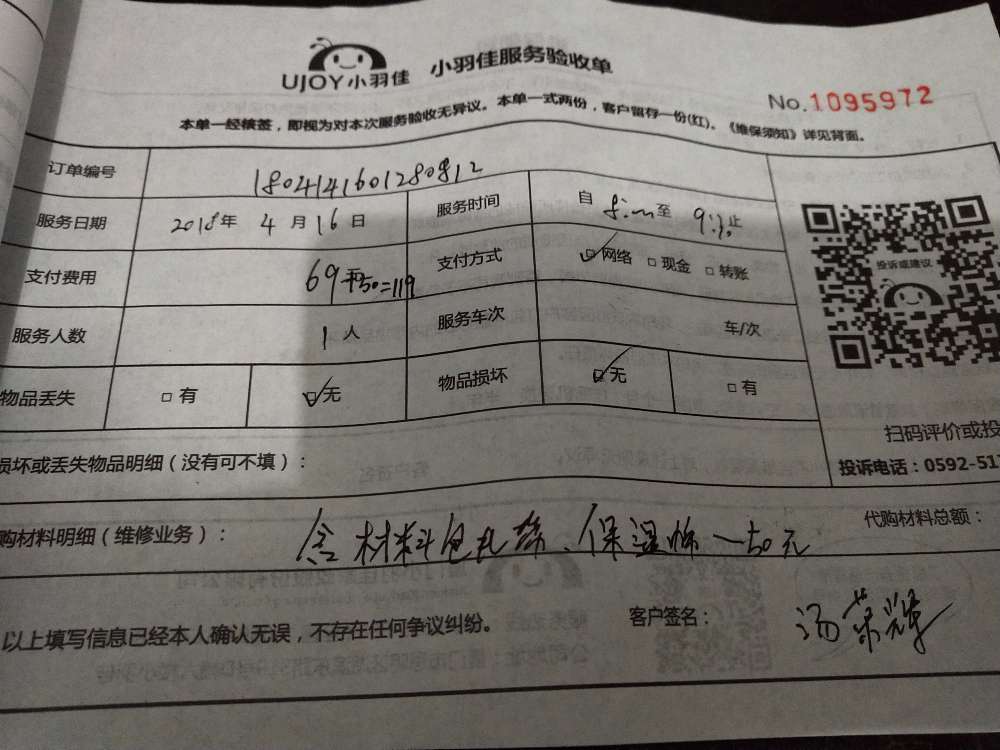 UJOY小羽佳 小羽佳服务验收单
No.1095972
本单一经核签，即视为对本次服务验收无异议。本单一式两份，客户留存一份(红)。《维保须知》详见背面。
订单编号 1804141601280812
服务日期 2018年 4月16日 服务时间 自 至 止
支付费用 69+50=119 支付方式 网络 现金 转账
投诉或建议
服务人数 1人 服务车次 车/次
物品丢失 有 无 物品损坏 无 有
扫码评价或投
损坏或丢失物品明细（没有可不填）：
投诉电话：0592-517
购材料明细（维修业务）： 含材料包扎带、保温棉一50元
代购材料总额：
以上填写信息已经本人确认无误，不存在任何争议纠纷。 客户签名： 汤荣辉